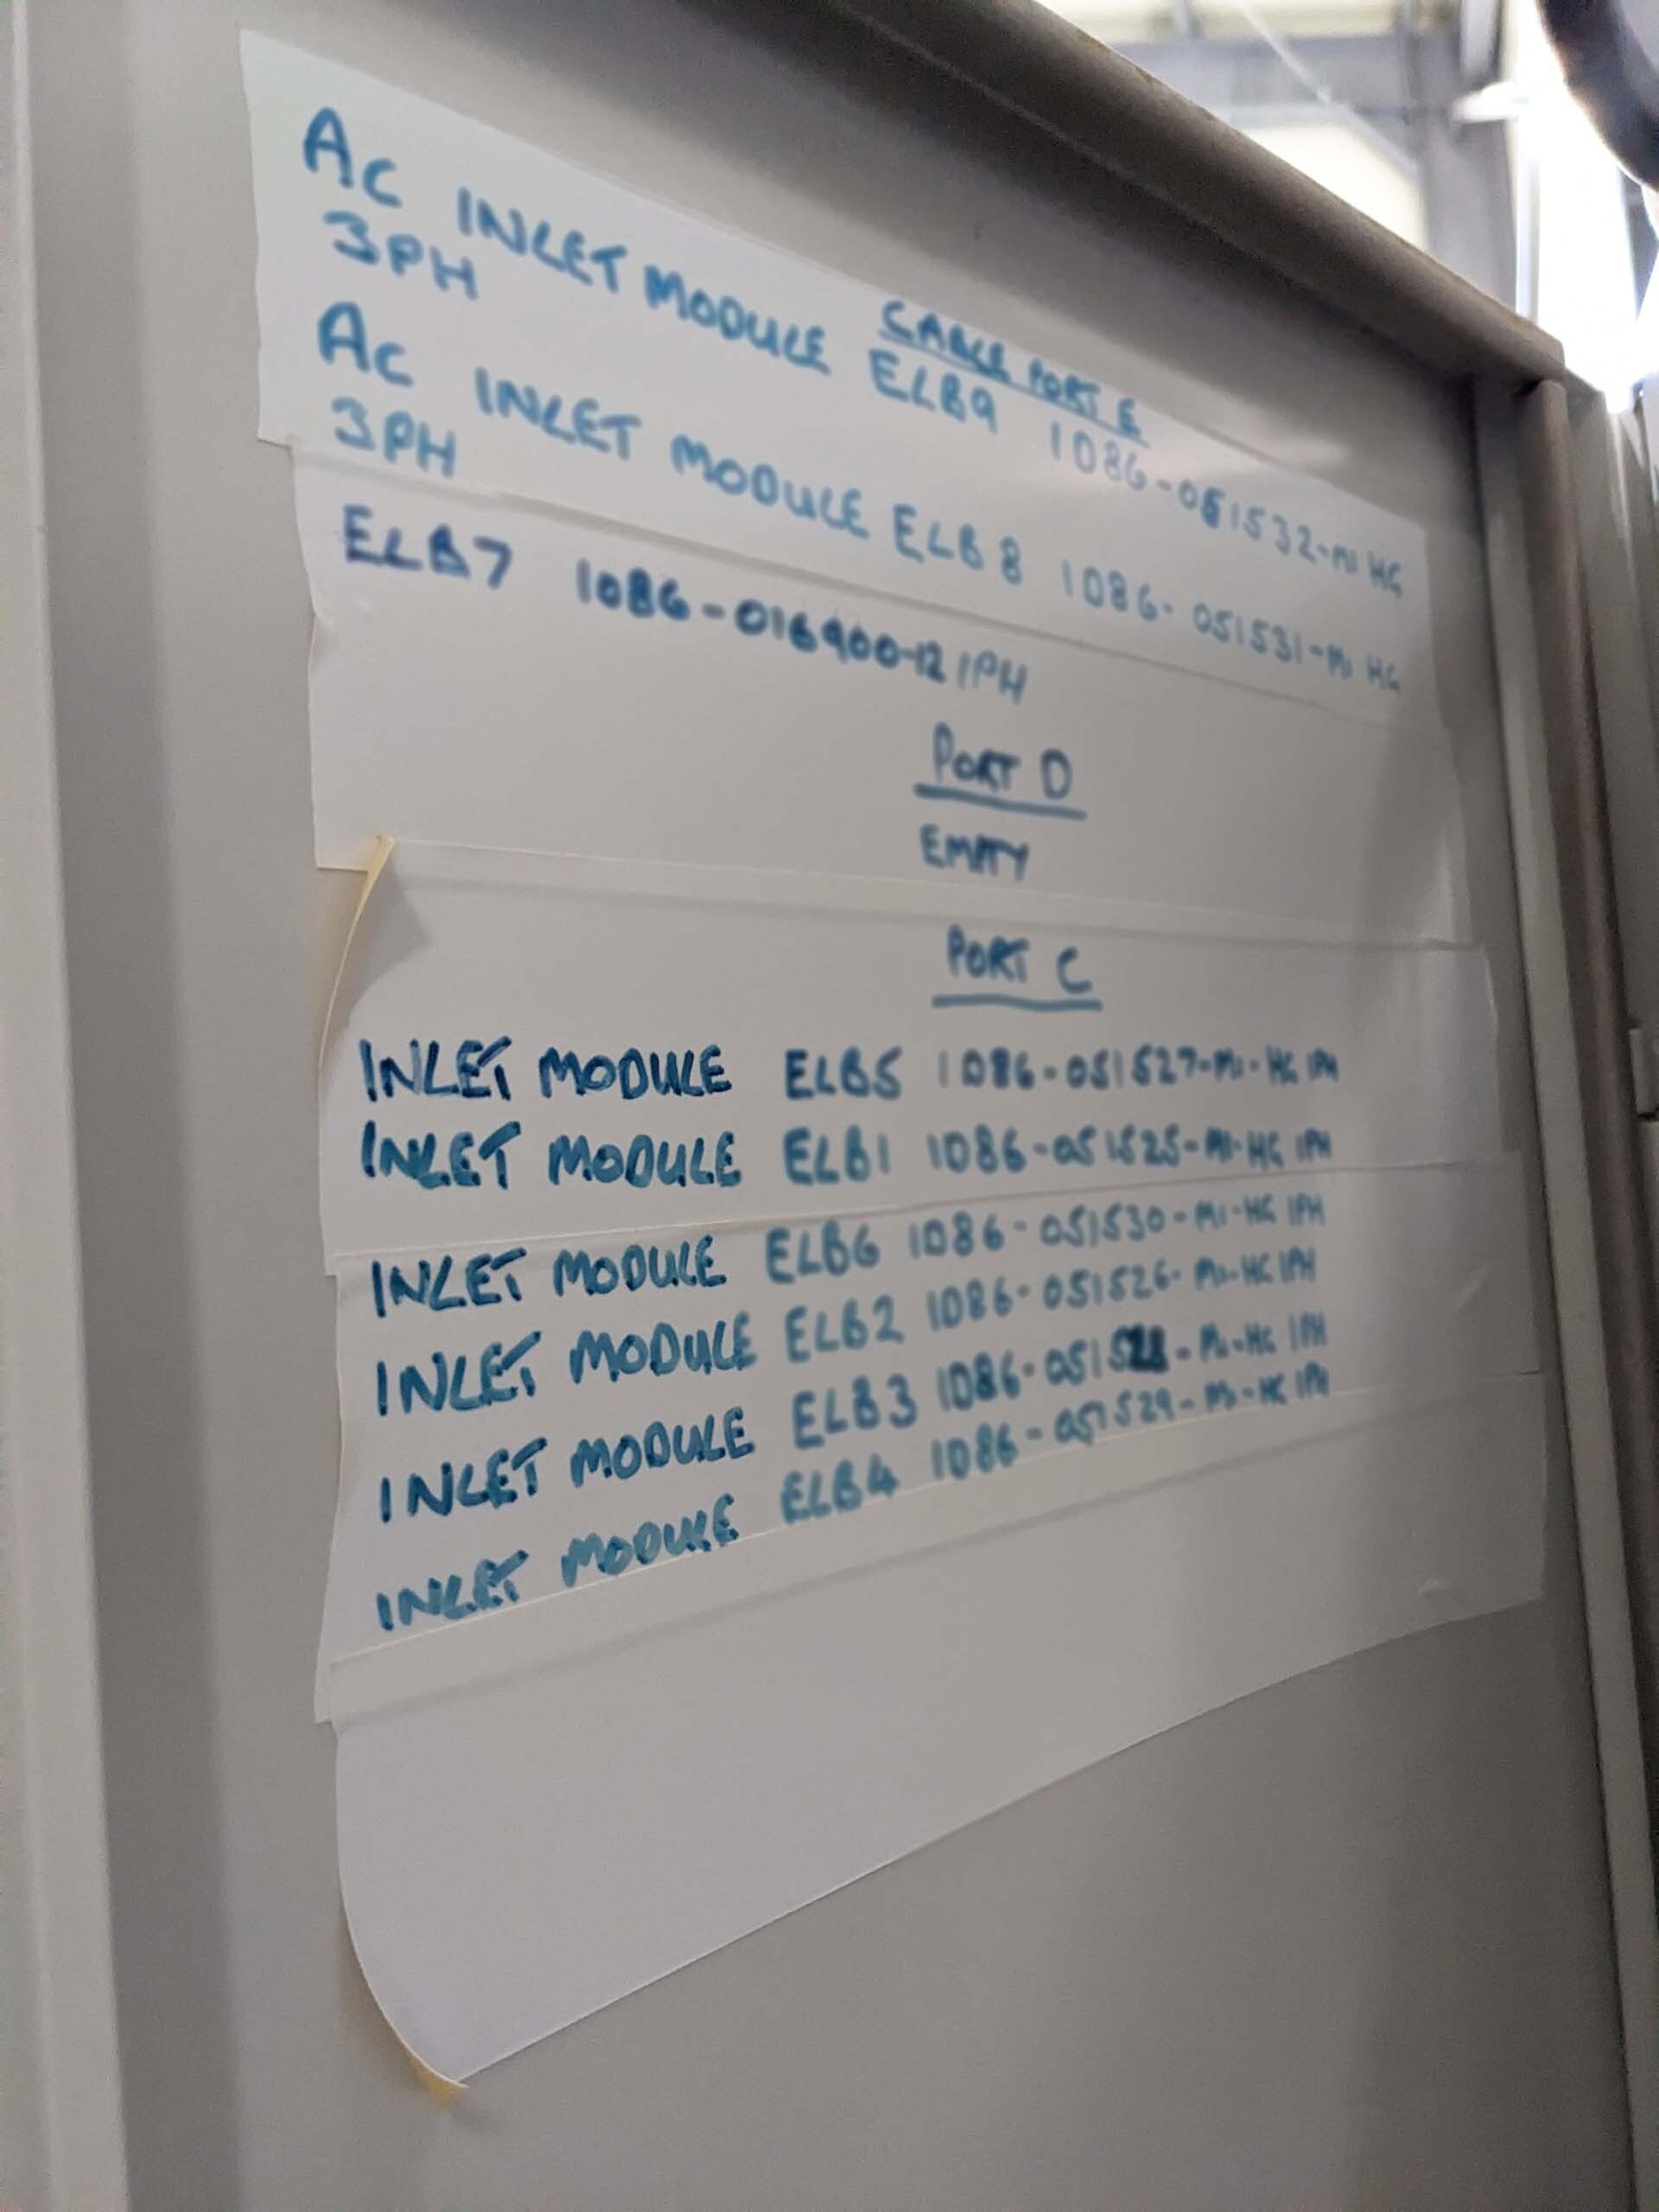 CABLE PORT E
AC INLET MODULE ELB9 1086-051532-M1 HG
3PH
AC INLET MODULE ELB8 1086-051531-M1 HG
3PH
ELB7 1086-016900-12 1PH
PORT D
EMPTY
PORT C
INLET MODULE ELB5 1086-051527-M1-HG 1PH
INLET MODULE ELB1 1086-051525-M1-HG 1PH
INLET MODULE ELB6 1086-051530-M1-HG 1PH
INLET MODULE ELB2 1086-051526-M1-HG 1PH
INLET MODULE ELB3 1086-051528-M1-HG 1PH
INLET MODULE ELB4 1086-051529-M1-HG 1PH